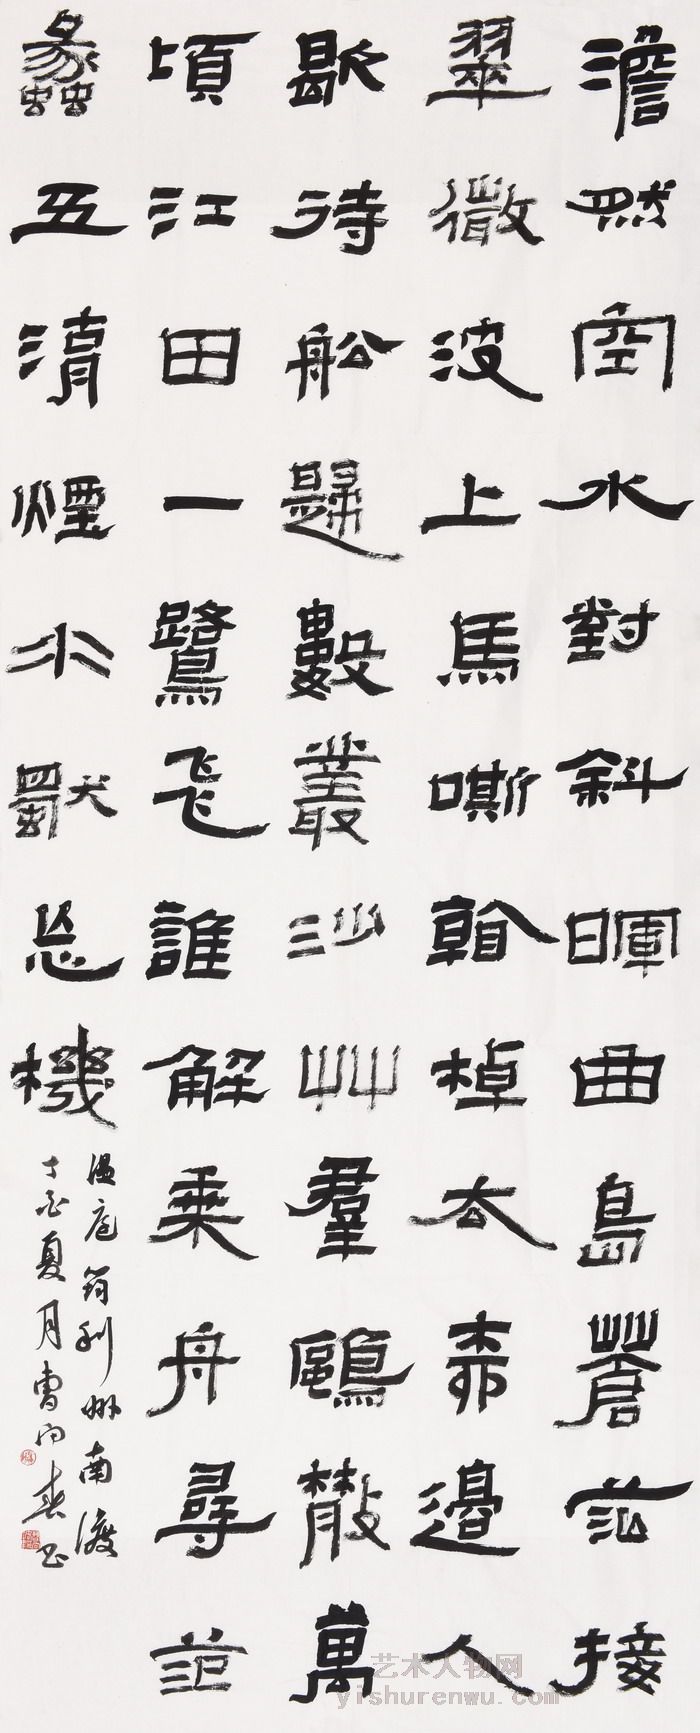 澹然空水對斜暉曲島蒼茫接
翠微波上馬嘶看棹去柳邊人
歇待船歸數叢沙草羣鷗散萬
頃江田一鷺飛誰解乘舟尋范
蠡五湖煙水獨忘機
溫庭筠利州南渡
丁酉夏月曹向春書
艺术人物网
yishurenwu.com